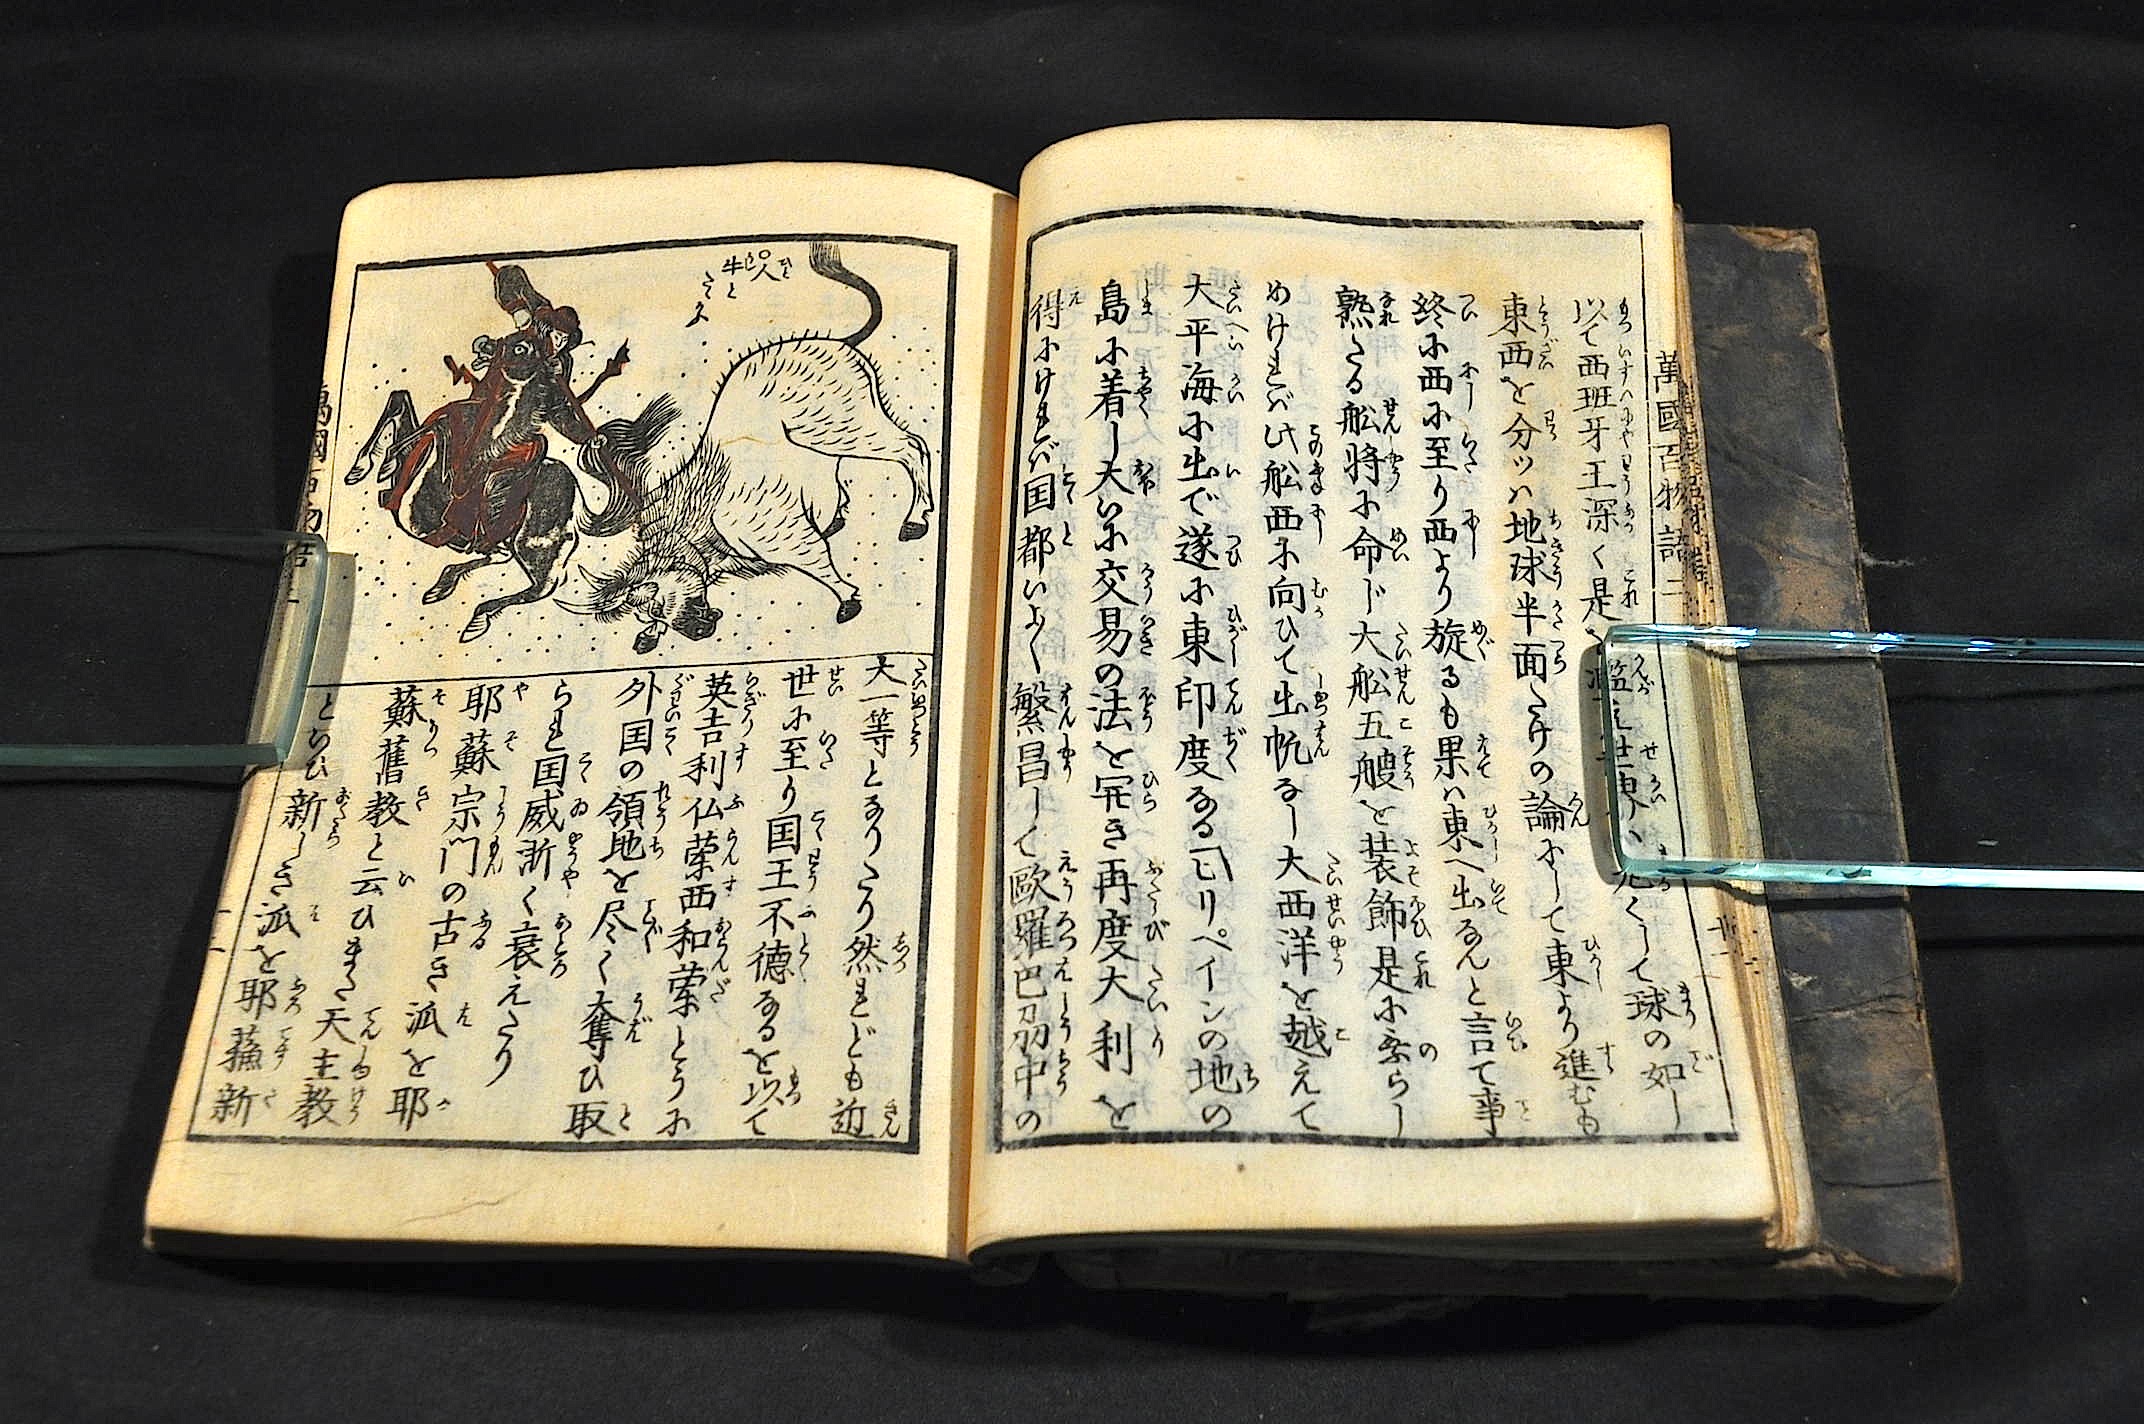 萬國百物語二
以て西班牙王深く是
世
くして球の如し
東西を分ツハ地球半面たけの論にして東より進むも
終に西に至り西より旋るも果ハ東へ出るなんと言て事
熟たる舩将に命ド大舩五艘を装飾是に乗らし
めけれバ此舩西に向ひて出帆なし大西洋を越えて
大平海に出で遂に東印度なるヒリペインの地の
島に着し大いに交易の法を開き再度大利を
得にけれバ国都いよく繁昌して歐羅巴刕中の
人
牛と
大一等となりたり然れども近
世に至り国王不徳なるを以て
英吉利仏蘭西和蘭とうに
外国の領地を尽く奪ひ取
られ国威漸く衰えたり
耶蘇宗門の古き派を耶
蘇舊教と云ひまた天主教
とも云ひ新しき派を耶蘇新